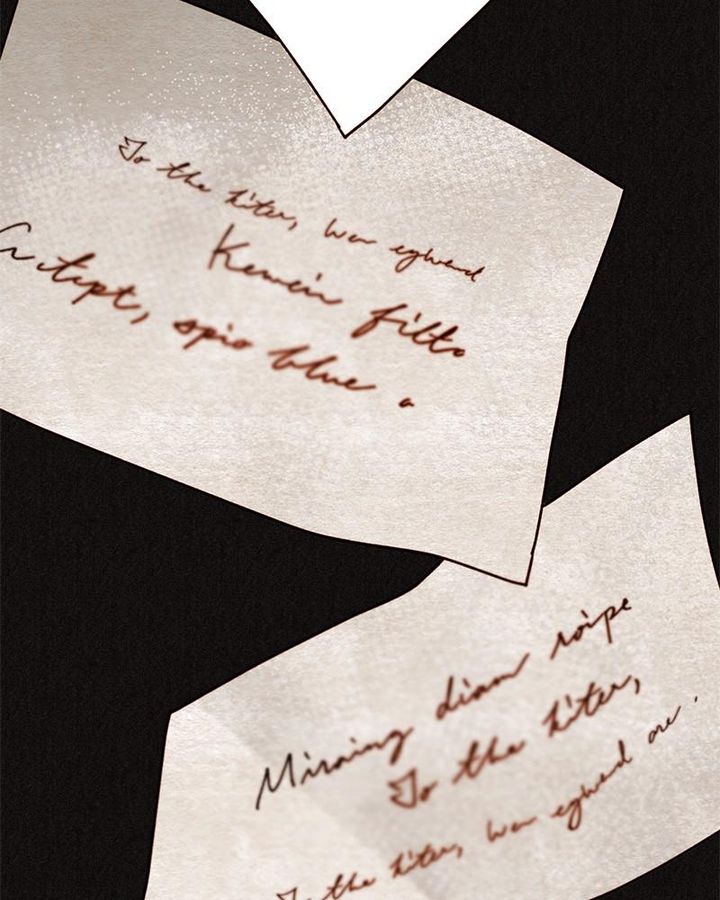 To the hiter, wan egwend
Kewein filto
tept, spio blue a
Miraing diam roipe
To the hiter,
To the hiter, wan egwend are.